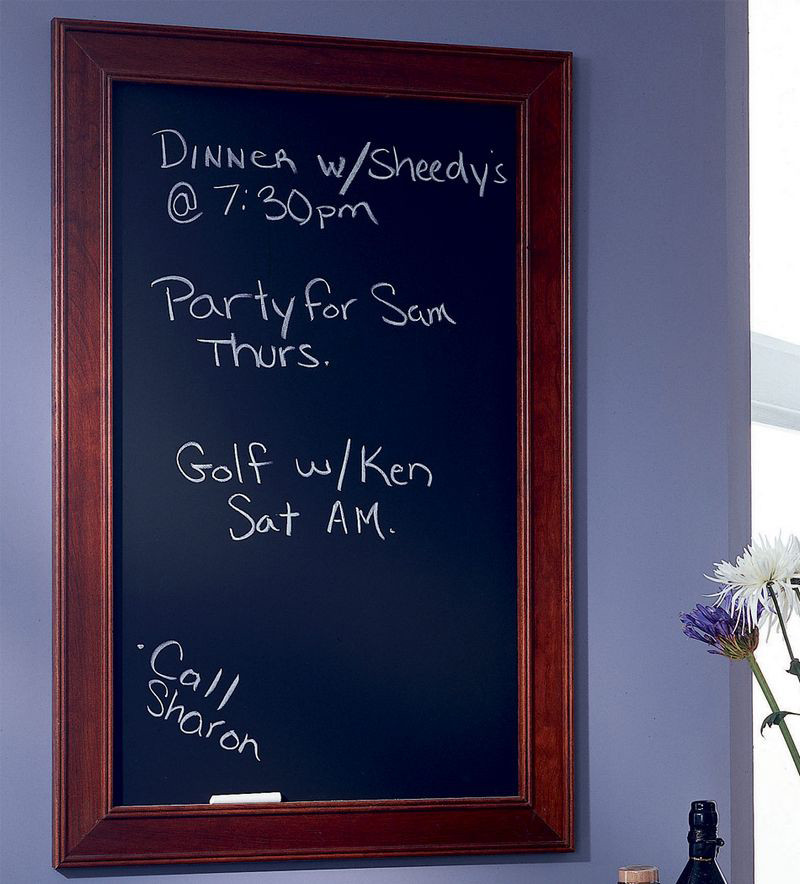 Dinner w/Sheedy's
@ 7:30pm
Party for Sam
Thurs.
Golf w/Ken
Sat AM.
·Call
Sharon